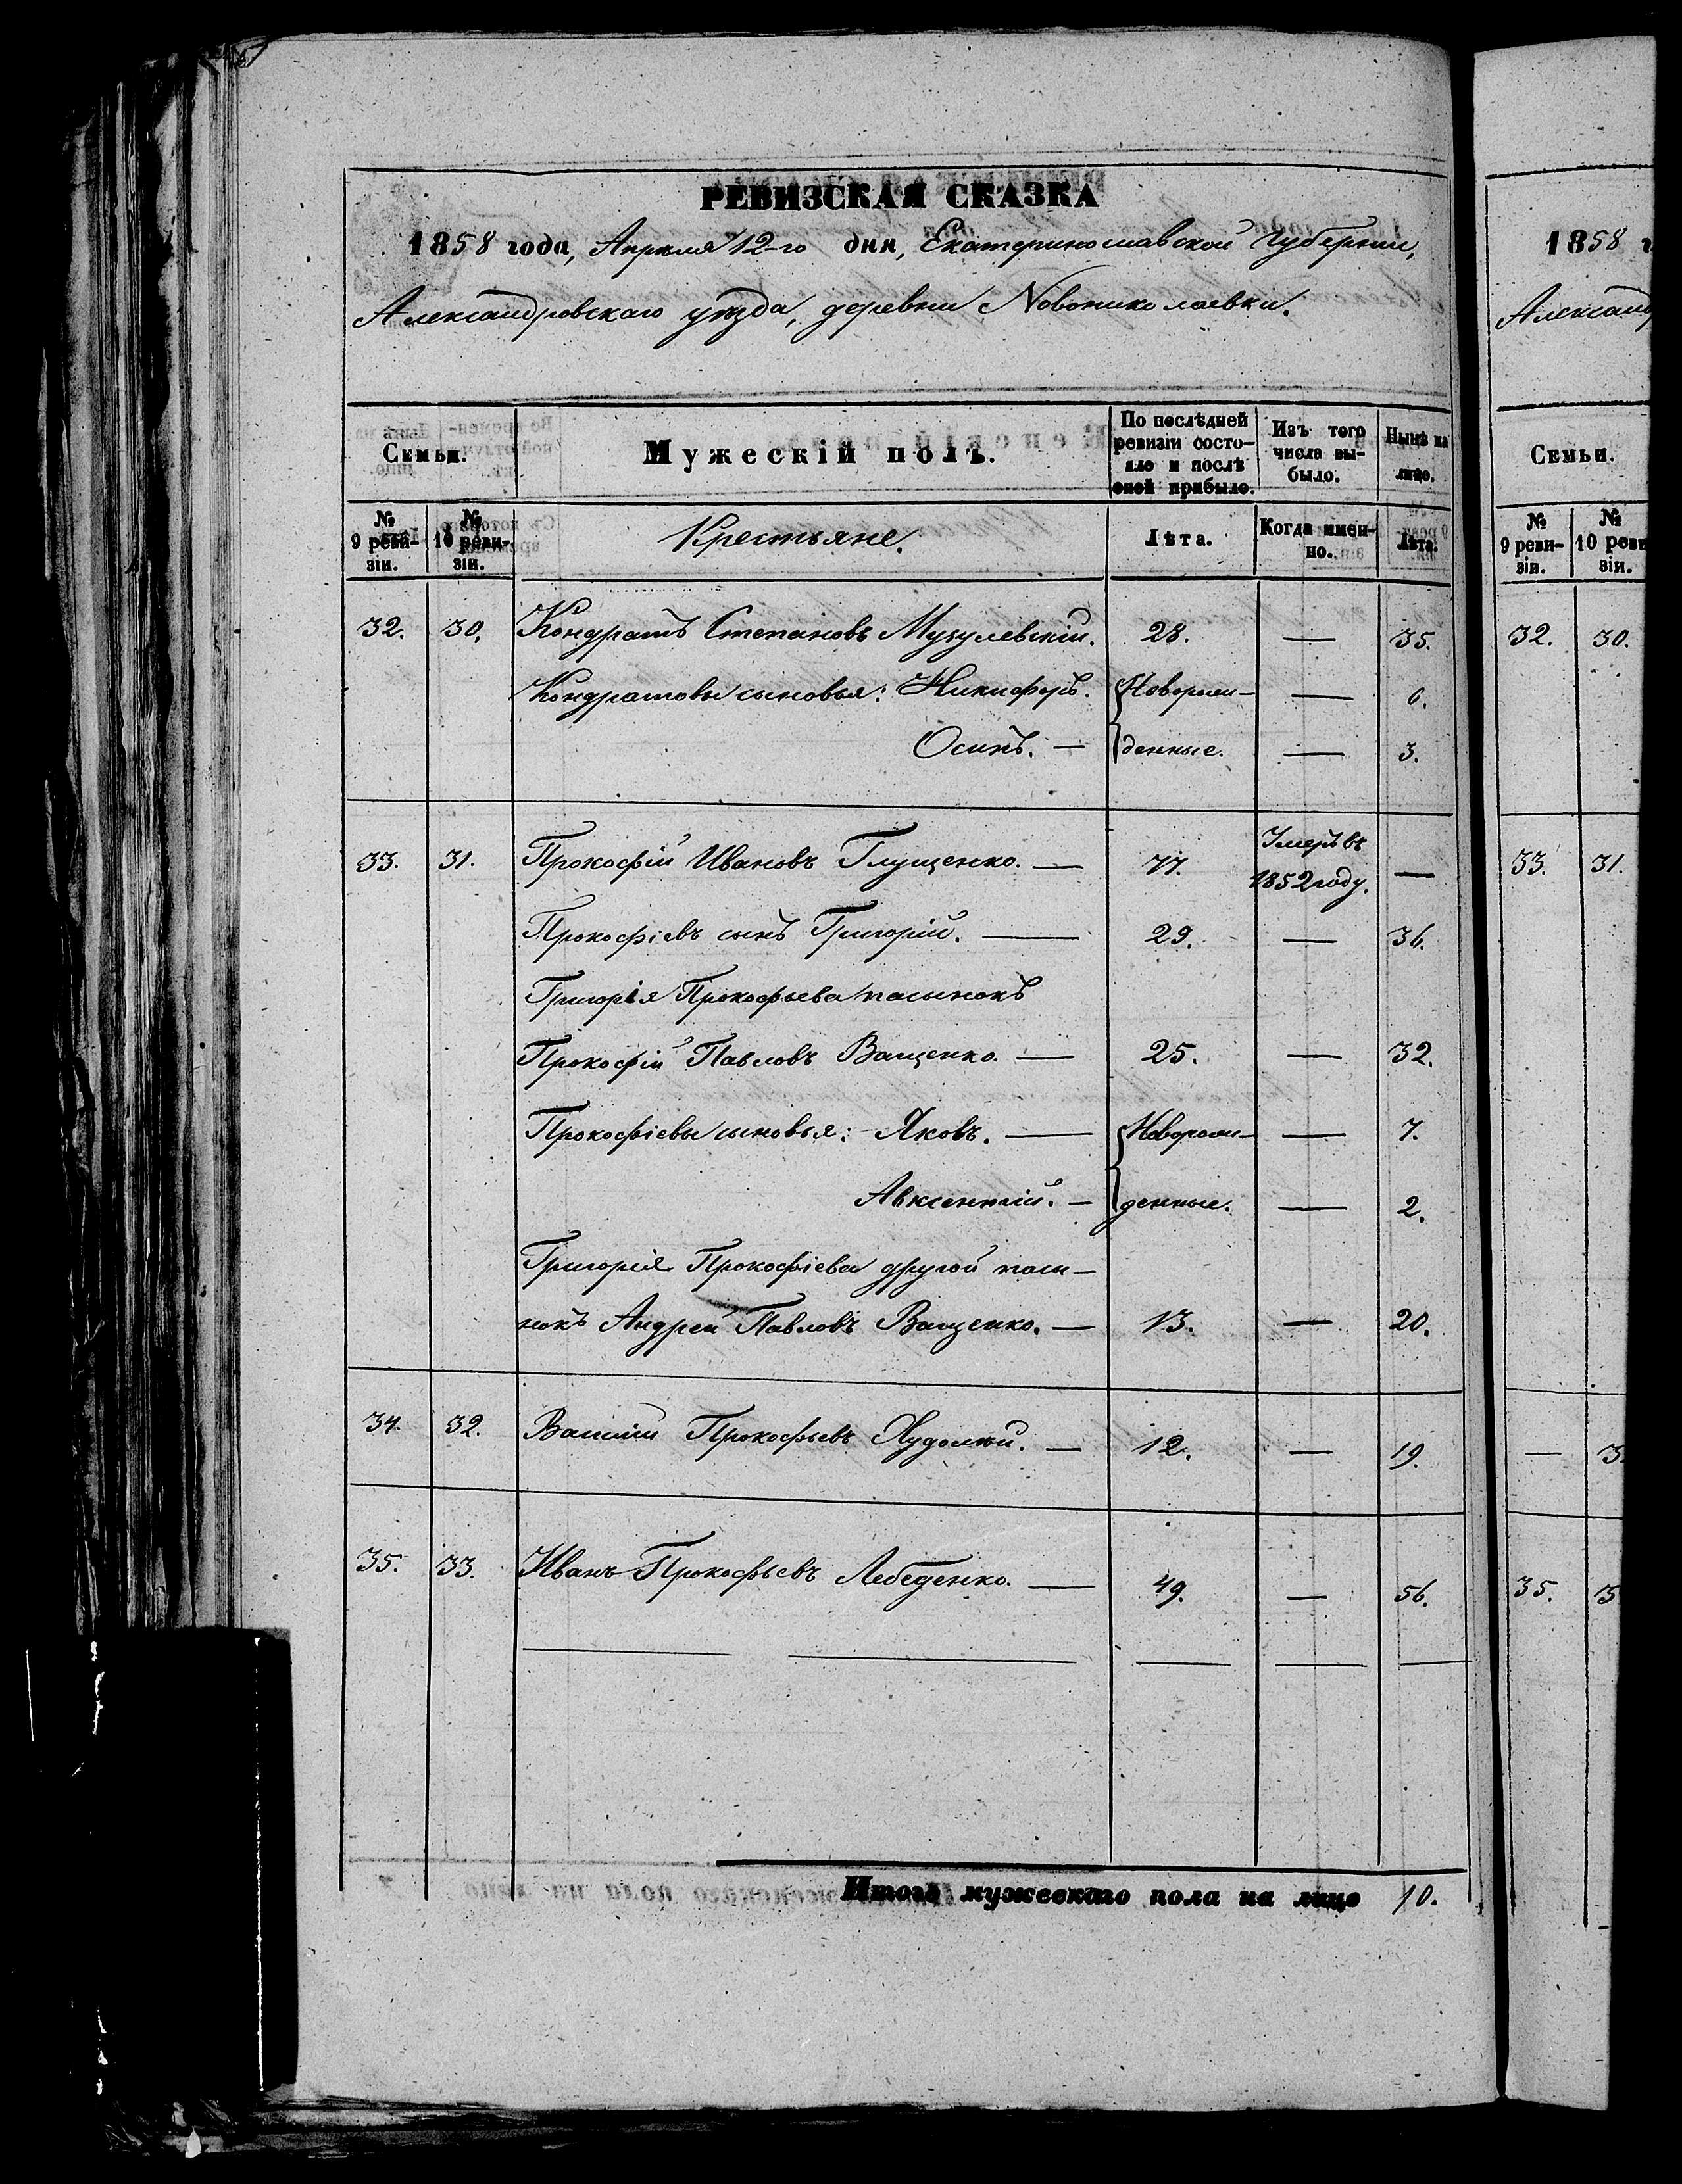 РЕВИЗСКАЯ СКАЗКА
1858 года, Апрѣля 12-го дня, Екатеринославской Губерніи,
Александровскаго уѣзда, деревни Новониколаевки.
Семьи.
Мужескій полъ.
По послѣдней ревизіи состояло и послѣ оной прибыло.
Изъ того числа выбыло.
Нынѣ на лицо.
№ 9 ревизіи.
№ 10 ревизіи.
Крестьяне.
Лѣта.
Когда именно.
Лѣта.
32. 30. Кондратъ Степановъ Музулевскій. 28. — 35.
Кондратовы сыновья: Никифоръ. Коворож— — 6.
Осипъ. — денные. — 3.
33. 31. Прокофій Ивановъ Глущенко. — 77. Умеръ въ 1852 году. —
Прокофіевъ сынъ Григорій. — 29. — 36.
Григорія Прокофьева пасынокъ
Прокофій Павловъ Ващенко. — 25. — 32.
Прокофіевы сыновья: Яковъ. — Новорож— — 7.
Авксентій. — денные. — 2.
Григорія Прокофіева другой пасы—
нокъ Андрей Павловъ Ващенко. — 13. — 20.
34. 32. Василій Прокофьевъ Худолѣй. — 12. — 19.
35. 33. Иванъ Прокофьевъ Лебеденко. — 49. — 56.
Итого мужескаго пола на лицо 10.
1858
Александ
Семьи.
№ 9 ревизіи.
№ 10 реви
зіи.
32. 30.
33. 31.
— 3
35. 3